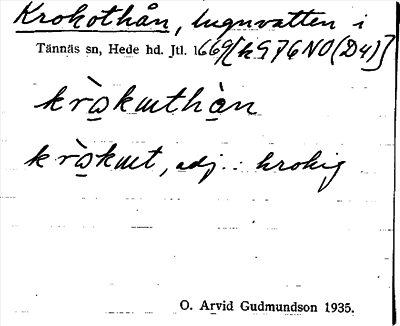 Krokothån, lugnvatten i
Tännäs sn, Hede hd. Jtl. 1669[h976NO(D4)]
kràkɯthàn
kràkɯt, adj.: krokig
O. Arvid Gudmundson 1935.